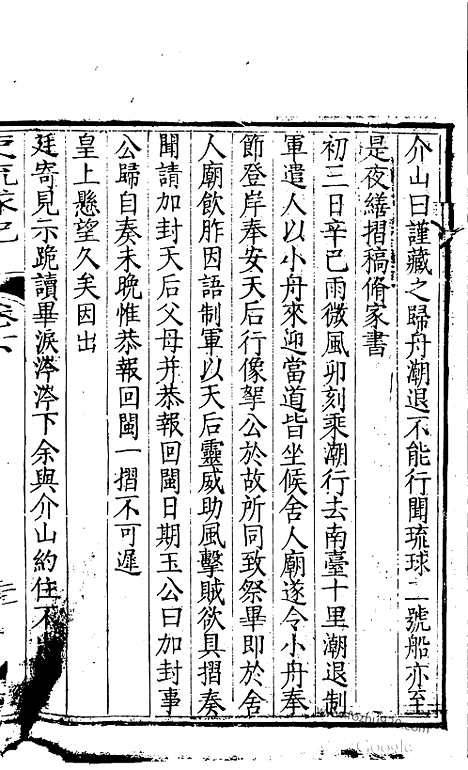 介山曰謹藏之歸舟潮退不能行聞琉球二號船亦至
是夜繕摺稿脩家書
初三日辛巳雨微風卯刻乘潮行去南臺十里潮退制
軍遣人以小舟來迎當道皆坐候舍人廟遂令小舟奉
節登岸奉安天后行像拏公於故所同致祭畢即於舍
人廟飲胙因語制軍以天后靈威助風擊賊欲具摺奏
聞請加封天后父母并恭報回閩日期玉公曰加封事
公歸自奏未晚惟恭報回閩一摺不可遲
皇上懸望久矣因出
廷寄見示跪讀畢淚涔涔下余與介山約住不
使琉球記 卷六
Google